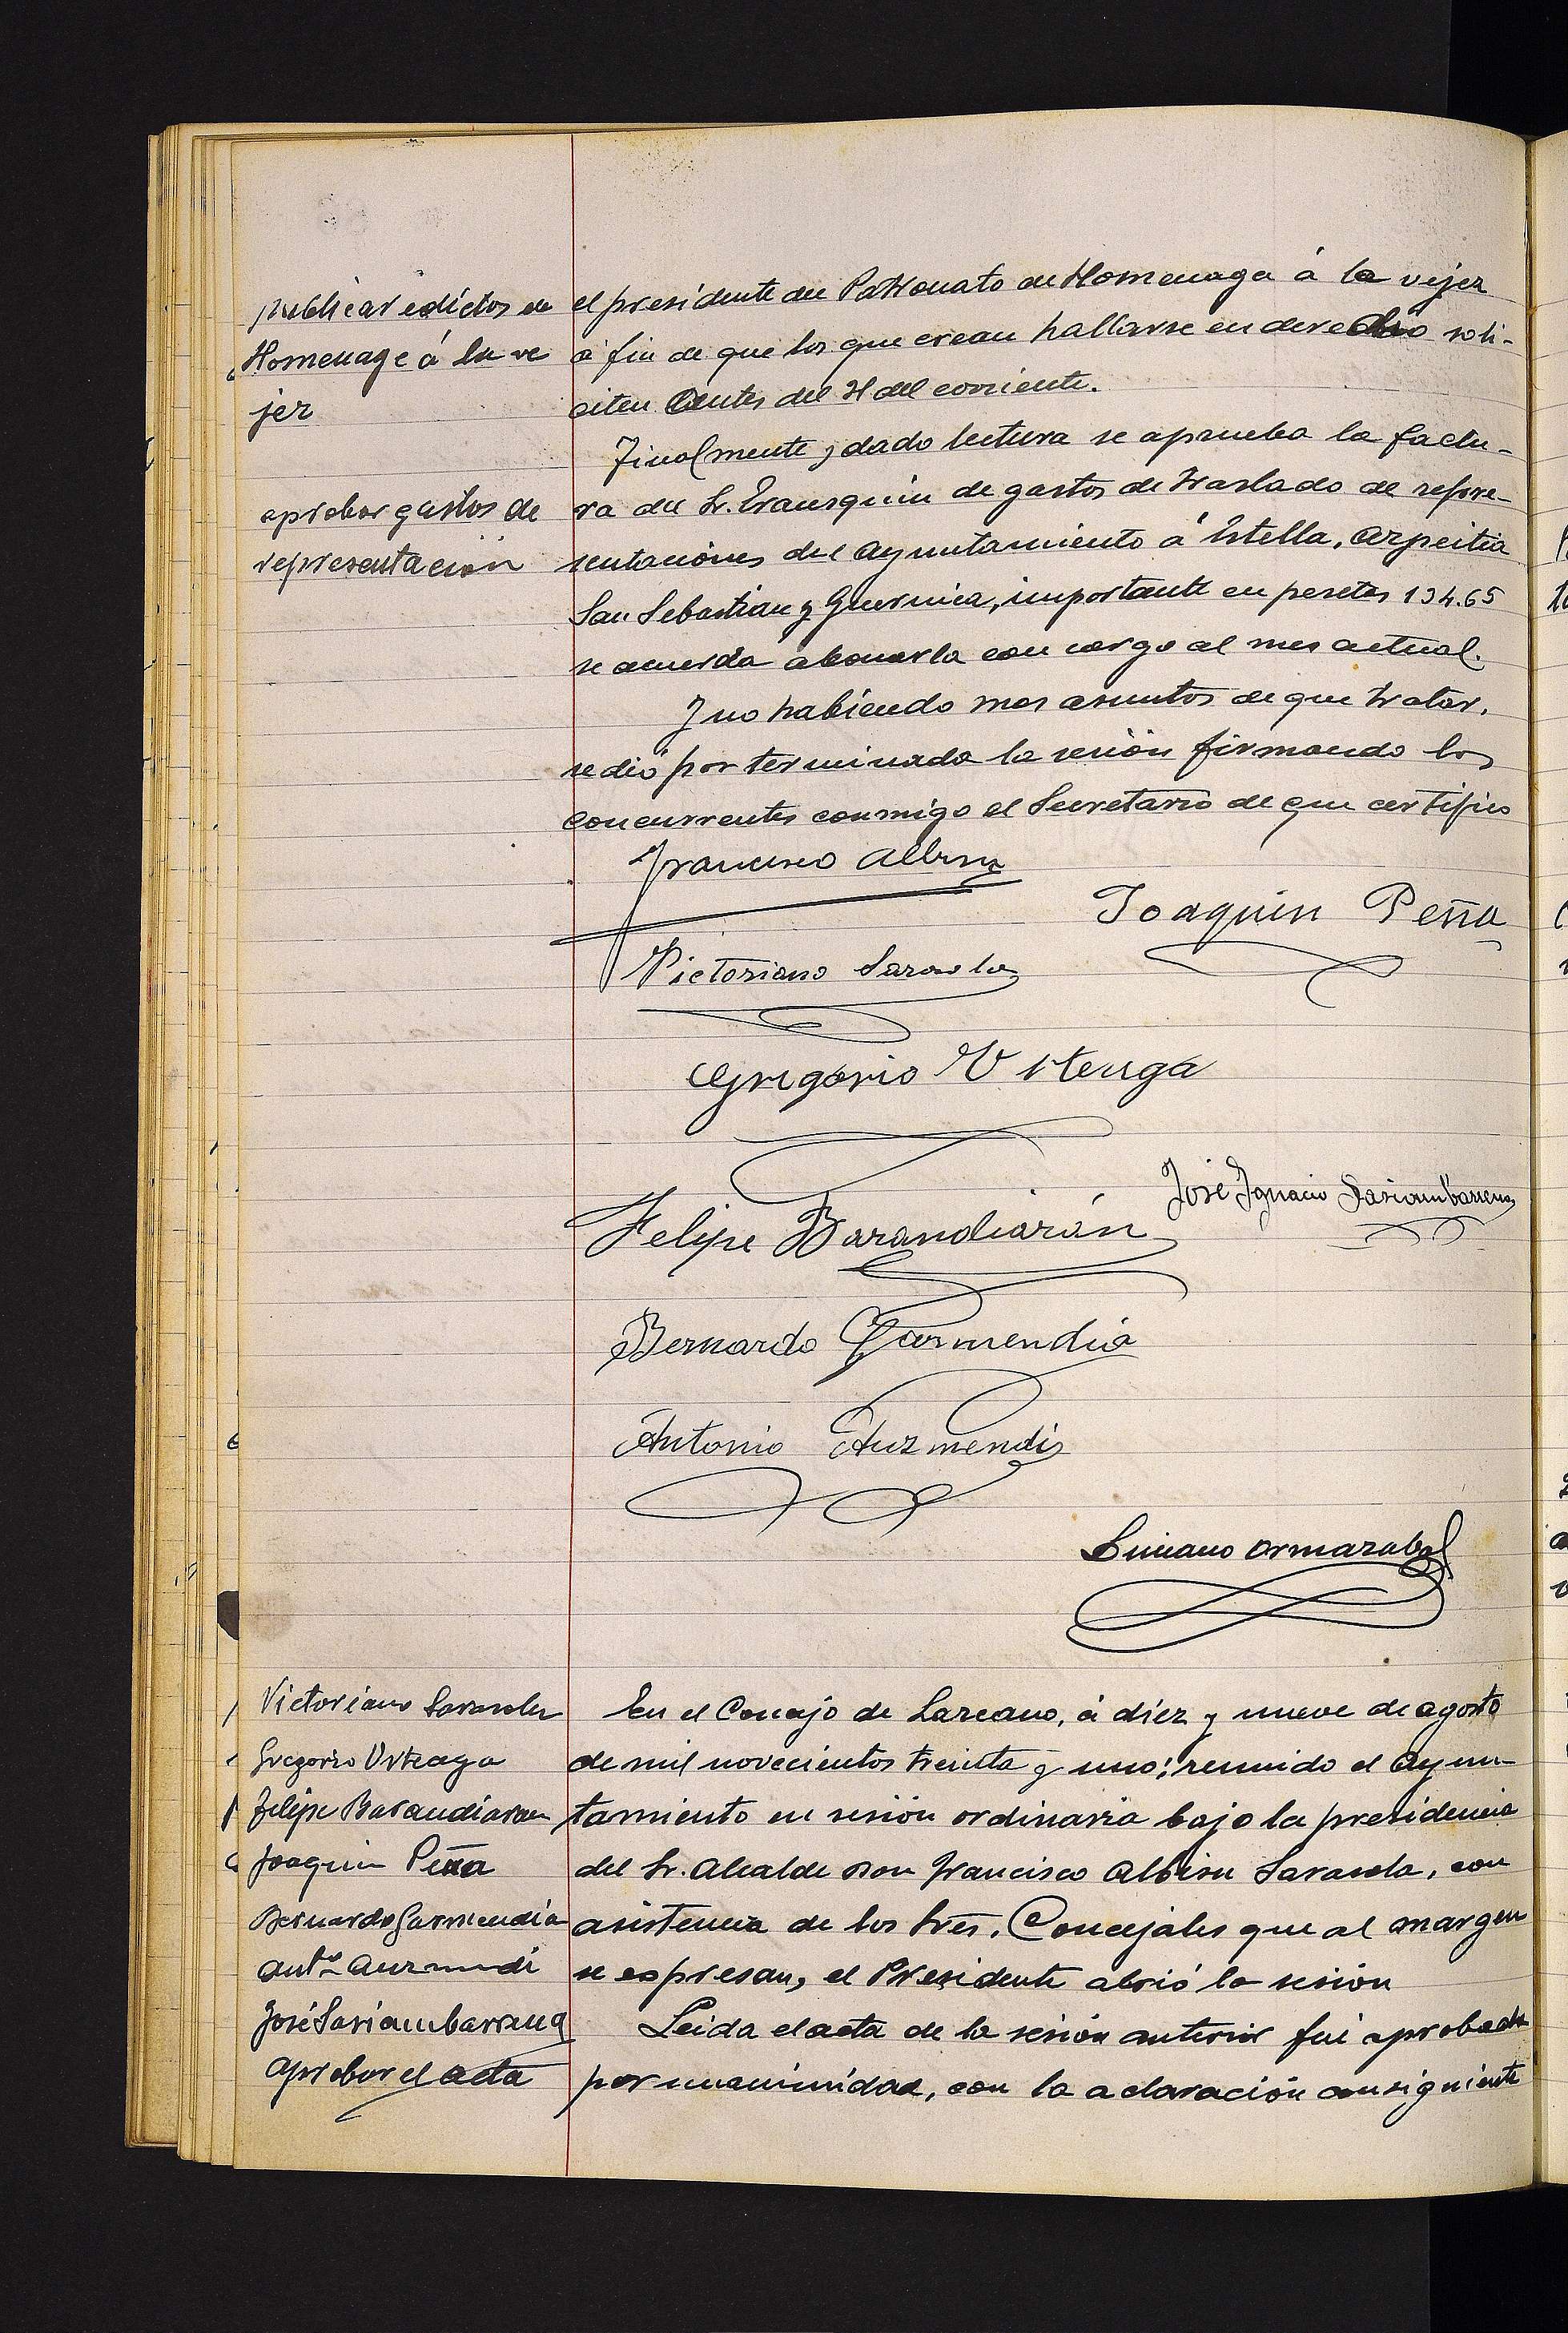 publicar edictos de
Homenage á la ve
jez
el presidente del Patronato de Homenage á la vejez
á fin de que los que crean hallarse en derecho soli-
citen antes del 21 del corriente.
aprobar gastos de
representación
Finalmente, dado lectura se aprueba la factu-
ra del Sr. Erausquin de gastos de traslado de repre-
sentaciones del Ayuntamiento á Estella, Azpeitia
San Sebastian y Guernica, importante en pesetas 134.65
se acuerda abonarla con cargo al mes actual.
Y no habiendo mas asuntos de que tratar,
se dió por terminada la sesión firmando los
concurrentes conmigo el Secretario de que certifico
Francisco Albisu
Joaquin Peña
Victoriano Sarasola
Gregorio Urteaga
José Ignacio Sasiambarrena
Felipe Barandiarán
Bernardo Garmendia
Antonio Auzmendi
Luciano Ormazabal
Victoriano Sarasola
Gregorio Urteaga
Felipe Barandiaran
Joaquin Peña
Bernardo Garmendia
Antº Auzmendi
José Sasiambarrena
Aprobar el acta
En el Concejo de Lazcano, á diez y nueve de agosto
de mil novecientos treinta y uno; reunido el Ayun-
tamiento en sesión ordinaria bajo la presidencia
del Sr. Alcalde Don Francisco Albisu Sarasola, con
asistencia de los Sres. Concejales que al margen
se expresan, el Presidente abrió la sesión
Leida el acta de la sesión anterior fué aprobada
por unanimidad, con la aclaración consiguiente